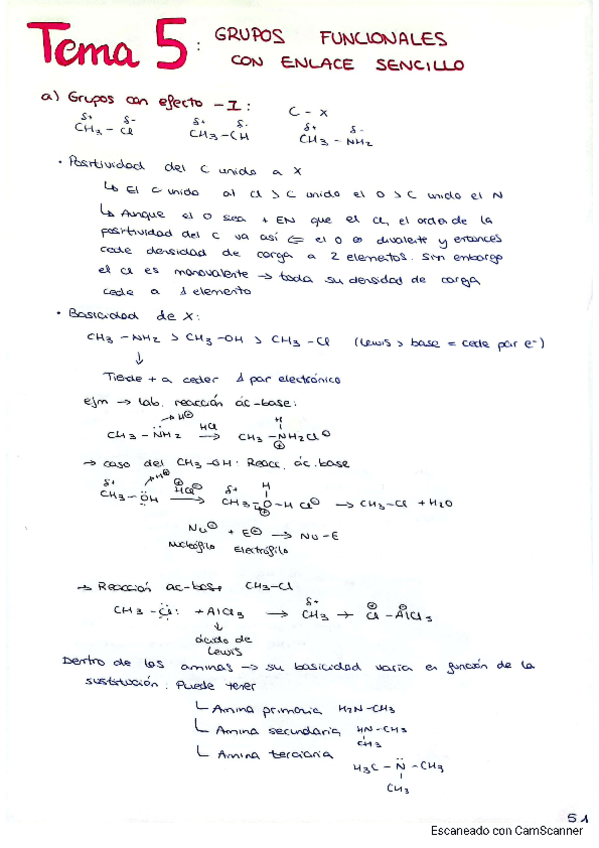 Tema 5: GRUPOS FUNCIONALES
CON ENLACE SENCILLO
a) Grupos con efecto -I: C - X
δ+ δ- δ+ δ- δ+ δ-
CH3 - Cl CH3 - CH CH3 - NH2
· Positividad del C unido a X
↳ El C unido al Cl > C unido el O > C unido el N
↳ Aunque el O sea + EN que el Cl, el orden de la
positividad del C va así ⇐ el O es divalente y entonces
cede densidad de carga a 2 elementos. Sin embargo
el Cl es monovalente → toda su densidad de carga
cede a 1 elemento
· Basicidad de X:
CH3 - NH2 > CH3 - OH > CH3 - Cl (Lewis > base = cede par e-)
↓
Tiende + a ceder 1 par electrónico
ejm → lab. reacción ác-base:
→ H⊕ H
CH3 - N̈H2 HCl → CH3 - NH2Cl⊖
⊕
→ caso del CH3 - OH: Reacc. ác. base
δ+ → H⊕ H⊕Cl⊖ δ+ H
CH3 - ÖH → CH3 - O - H Cl⊖ → CH3 - Cl + H2O
Nu⊖ + E⊕ → Nu - E
Nucleófilo Electrófilo
→ Reacción ac-base CH3-Cl
CH3 - C̈l: + AlCl3 → δ+ CH3 + Cl⊕ - AlCl3⊖
↓
ácido de
Lewis
Dentro de las aminas → su basicidad varia en función de la
sustitución. Puede tener
Amina primaria H2N-CH3
Amina secundaria HN-CH3
CH3
Amina terciaria
H3C - N̈ - CH3
CH3
51
Escaneado con CamScanner